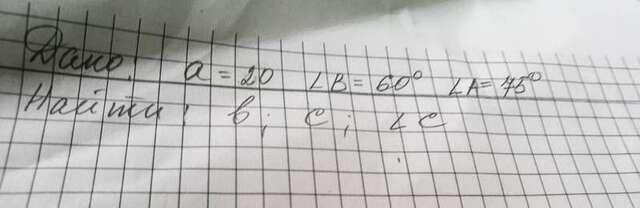 Дано: a = 20 ∠B = 60° ∠A = 75°
Найти: b; c; ∠C